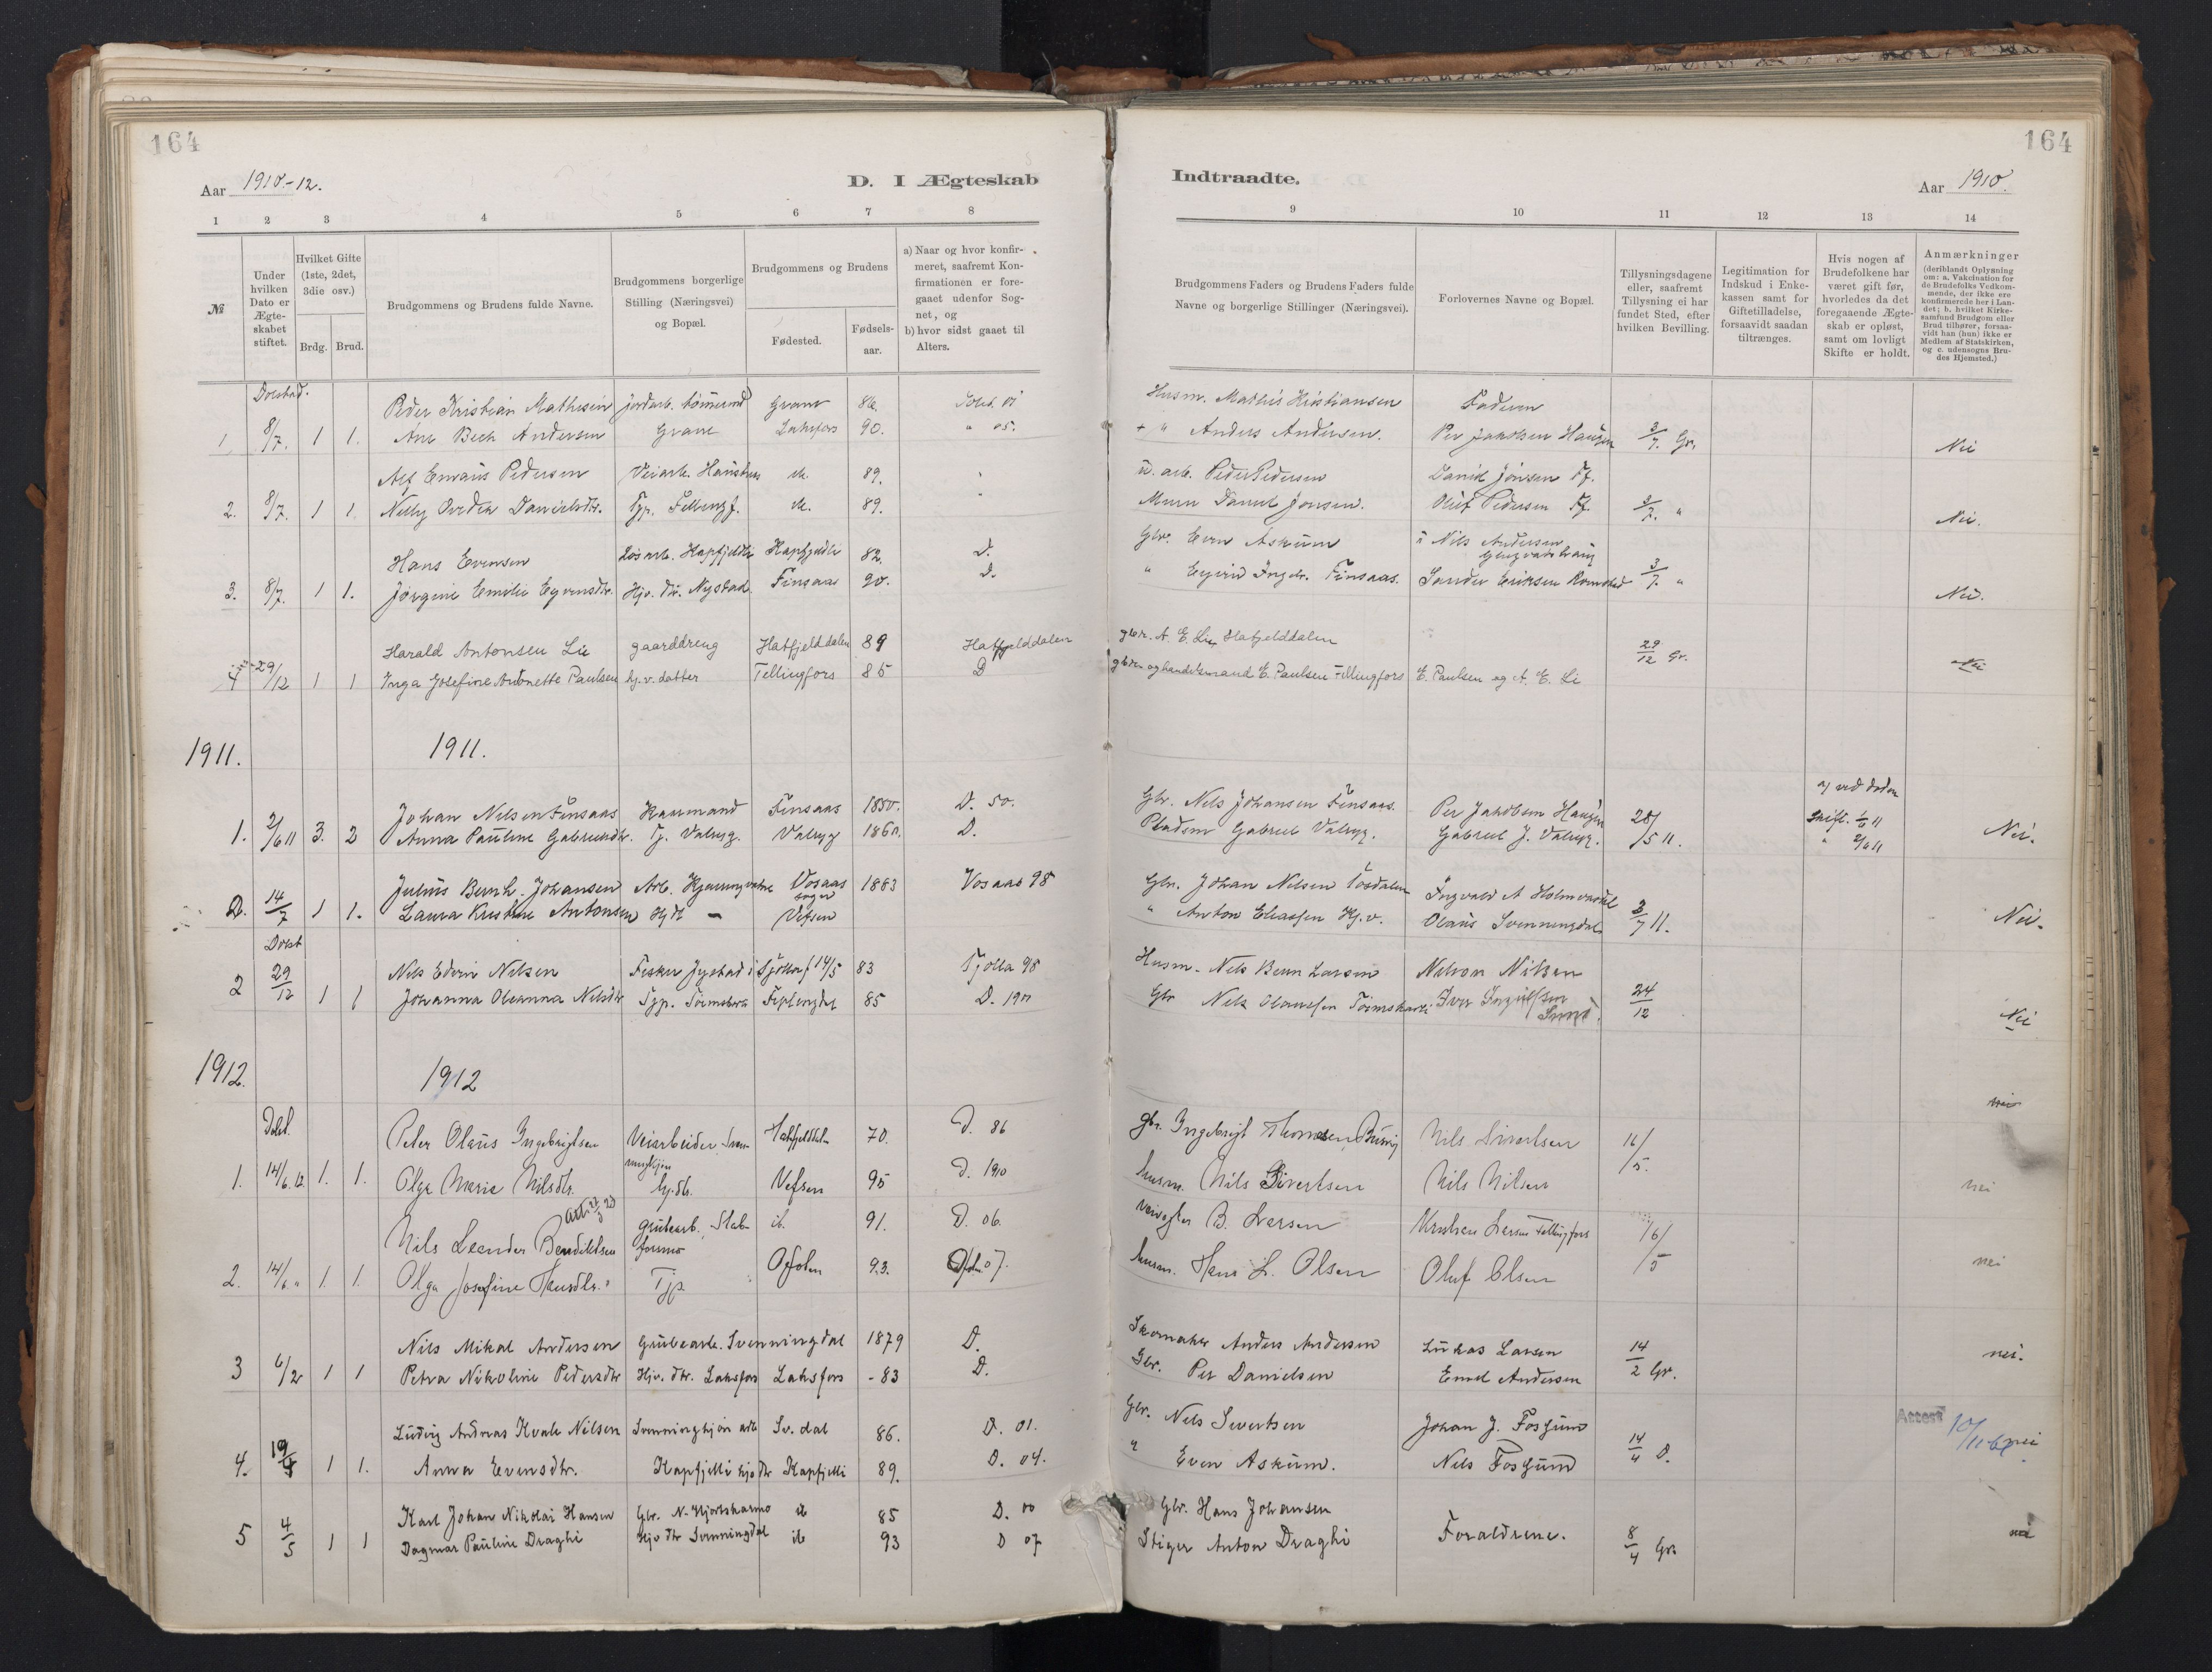 164
Aar 1910.-12.
D. I Ægteskab
1 2 3 4 5 6 7 8
№
Under hvilken Dato er Ægte-skabet stiftet.
Hvilket Gifte (1ste, 2det, 3die osv.)
Brdg. Brud.
Brudgommens og Brudens fulde Navne.
Brudgommens borgerlige Stilling (Næringsvei) og Bopæl.
Brudgommens og Brudens
Fødested.
Fødsels-aar.
a) Naar og hvor konfir-meret, saafremt Kon-firmationen er fore-gaaet udenfor Sog-net, og
b) hvor sidst gaaet til Alters.
Dolstad.
Peder Kristian Mathisen Grane 86.
1 8/7. 1 1. Ane Bech Andersen Grane Laksfors 90. " 05.
Alf Emvaus Pedersen Veiarb. 89.
2. 8/7. 1 1. Nelly Danielsdtr. Tjp. 89.
Hans Evensen Løsarb. Kapfjeldli Kapfjeldli 82. D.
3. 8/7. 1 1. Jørgine Emilie Eyvensdtr. Hjv. dtr. Nystad Finsaas 90. D.
Harald Antonsen Lie gaarddreng Hatfjelddalen 89 Hatfjelddalen
4 29/12 1 1 Inga Josefine Antonette Paulsen hj.v. datter Fellingfors 85 D
1911. 1911.
Johan Nilsen Finsaas Kaarmand Finsaas 1850. D. 50.
1. 2/6 11 3. 2 Anna Pauline Gabrielsdtr. Tj. Valryg. Valryg 1860. D.
Julius Bernh. Johansen Arb. Vosaas 1883 Vosaas 98
2. 14/7 1 1. Laura Kristine Antonsen Hjdt — Vefsen
Dolst
29/12 Nels Edvin Nilsen Fisker Tjøtta f 14/5 83 Tjøtta 98
2 1 1 Johanna Oleanna Nelsdtr Tjp. Fiplingdal 85 D. 1901
1912. 1912
Dolst.
Peter Olaus Ingebrigtsen Veiarbeider Hatfjelddalen 70. D. 86
1. 14/6.12 1. 1. Olga Marie Nilsdtr. hj.dtr. Vefsen 95 D. 1910
Nils Leander Bendiktsen grubearb. Stab-forsmo ib. 91. D. 06.
2. 14/6 " 1. 1. Olga Josefine Hansdtr. Tjp. Ofoten 93. Ofoten 07.
Nils Mikal Andersen Grubearb. Svenningdal 1879 D.
3 6/2 1 1 Petra Nikoline Pedersdtr Hjv. dtr. Laksfors Laksfors -83 D.
Ludvig Andreas Kvale Nilsen Svenningkjøn arb Sv. dal 86. D. 01.
4. 19/4 1 1. Anna Evensdtr. Kapfjelli hjv dtr Kapfjelli 89. D. 04.
Karl Johan Nikolai Hansen Gbr. N. Hjortskarmo ib 85 D. 00
5 4/5 1 1 Dagmar Pauline Draghi Hjv dtr Svenningdal ib 93 D 07
164
Indtraadte.
Aar 1910.
9 10 11 12 13 14
Brudgommens Faders og Brudens Faders fulde Navne og borgerlige Stillinger (Næringsvei).
Forlovernes Navne og Bopæl.
Tillysningsdagene eller, saafremt Tillysning ei har fundet Sted, efter hvilken Bevilling.
Legitimation for Indskud i Enke-kassen samt for Giftetilladelse, forsaavidt saadan tiltrænges.
Hvis nogen af Brudefolkene har været gift før, hvorledes da det foregaaende Ægte-skab er opløst, samt om lovligt Skifte er holdt.
Anmærkninger (deriblandt Oplysning om: a. Vakcination for de Brudefolks Vedkom-mende, der ikke ere konfirmerede her i Lan-det; b. hvilket Kirke-samfund Brudgom eller Brud tilhører, forsaa-vidt han (hun) ikke er Medlem af Statskirken, og c. udensogns Bru-des Hjemsted.)
Husm. Mathis Kristiansen Faderen
+ " Anders Andersen. Per Jakobsen Haugen 3/7. Gr. Nei
arb. Peder Pedersen Daniel Jonsen Ff.
Murer Daniel Jonsen. Oluf Pedersen Ff. 3/7. " Nei.
Gbr. Even Askum Nils Andersen
" Eyvind Ingebr. Finsaas. Sander Eriksen 3/7. " Nei.
gbr. A. E. Lie, Hatfjelddalen
gbr. og handelsmand E. Paulsen Fellingfors E. Paulsen og A. E. Li 29/12 Gr. Nei
a) ved døden
Gbr. Nils Johansen Finsaas. Per Jakobsen Haugen 28/5 11. Skift. 1/6 11
Pladsm Gabriel Valryg. Gabriel J. Valryg. " 2/6 11 Nei.
Gbr. Johan Nilsen Ingvald A Holmvasdal
" Anton Eliassen Kj.v. Olaus Svenningdal 2/7 11. Nei.
Husm. Nels Larsen Nilson Nilsen
Gbr Nels Olaussen Iver 24/12 Nei
nei
gbr. Ingebrigt Thomsen Nils Sivertsen 16/5.
husm. Nils Sivertsen Nils Nilsen nei
B. Larsen Larsen Fellingfors 16/5
husm. Hans L. Olsen Oluf Olsen nei
Skomaker Anders Andersen Lukas Larsen 14/2 Gr. nei.
Gbr. Per Danielsen Emel Andersen
Gbr. Nels Sivertsen Johan J. Fosgum Attest 10/11-61 nei
" Even Askum. Nels Fosgum 14/4 D.
Gbr. Hans Johansen
Stiger Anton Draghi Forældrene. 8/4 Gr. nei